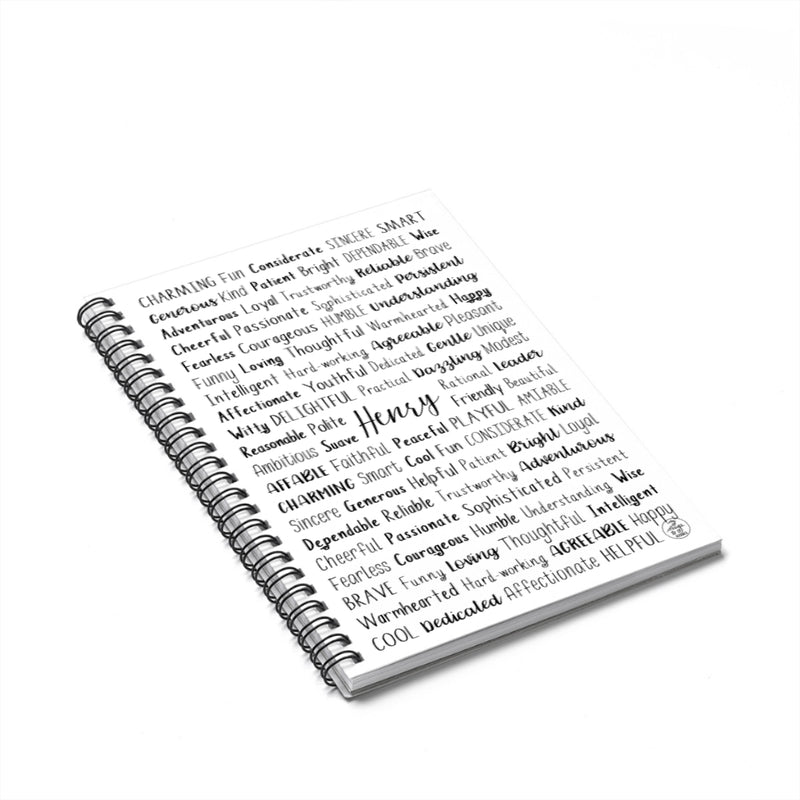 CHARMING Fun Considerate SINCERE SMART
Generous Kind Patient Bright DEPENDABLE Wise
Adventurous Loyal Trustworthy Reliable Brave
Cheerful Passionate Sophisticated Persistent
Fearless Courageous HUMBLE Understanding
Funny Loving Thoughtful Warmhearted Happy
Intelligent Hard-working Agreeable Pleasant
Affectionate Youthful Dedicated Gentle Unique
Witty DELIGHTFUL Practical Dazzling Modest
Reasonable Polite Henry Rational Leader
Ambitious Suave Friendly Beautiful
AFFABLE Faithful Peaceful PLAYFUL AMIABLE
CHARMING Smart Cool Fun CONSIDERATE Kind
Sincere Generous Helpful Patient Bright Loyal
Dependable Reliable Trustworthy Adventurous
Cheerful Passionate Sophisticated Persistent
Fearless Courageous Humble Understanding Wise
BRAVE Funny Loving Thoughtful Intelligent
Warmhearted Hard-working AGREEABLE Happy
COOL Dedicated Affectionate HELPFUL